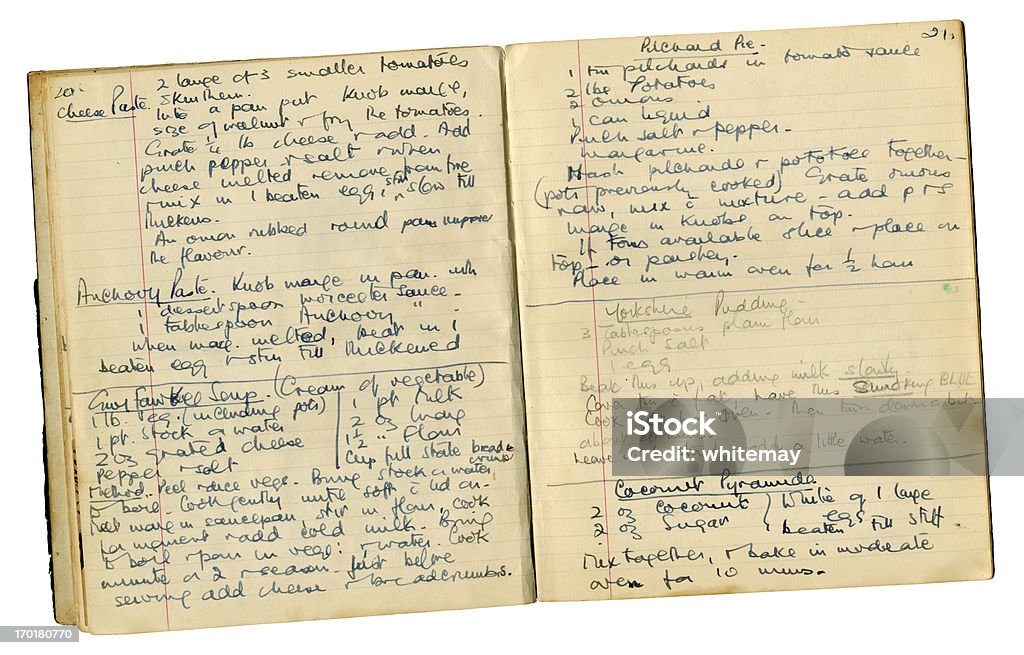 20.
2 large or 3 smaller tomatoes
Cheese Paste. Skin them.
Into a pan put knob marge,
size of walnut & fry the tomatoes.
Grate ¼ lb cheese & add. Add
pinch pepper & salt & when
cheese melted remove from fire
& mix in 1 beaten egg, stir slow till
thickens.
An onion rubbed round pan improves
the flavour.
Anchovy Paste. Knob marge in pan. with
1 dessertspoon worcester sauce.
1 tablespoon Anchovy "
when marge melted, beat in 1
beaten egg & stir till thickened
Guy Fawkes Soup. (Cream of vegetable)
1 lb. veg. (including pots) 1 pt milk
1 pt. stock or water 2 oz marg
2 oz grated cheese 1½ " flour
Pepper & salt Cup full stale bread crumbs
Method. Peel & dice vegs. Bring stock or water
to boil. Cook gently until soft c̄ lid on.
Melt marge in saucepan, stir in flour, cook
for moment & add cold milk. Bring
to boil & pour in veg: & water. Cook
minute or 2 & season. Just before
serving add cheese & breadcrumbs.
21.
Pilchard Pie.
1 tin pilchards in tomato sauce
2 lbs Potatoes
2 onions
1 can liquid
Pinch salt & pepper.
margarine.
Mash pilchards & potatoes together
(pots previously cooked) Grate onions
raw, mix c̄ mixture - add p & s
marge in knobs on top.
If toms available slice & place on
top - or parsley.
Place in warm oven for ½ hour
Yorkshire Pudding
3 Tablespoons plain flour
Pinch salt
1 egg
Beat this up, adding milk slowly.
Cover tin c̄ fat, have this smoking BLUE
Cook oven. Then turn down a bit
about
Leave add a little water.
Coconut Pyramids
2 oz Coconut White of 1 large
2 oz Sugar egg
beaten till stiff.
Mix together, & bake in moderate
oven for 10 mins.
iStock
Credit: whitemay
170180770